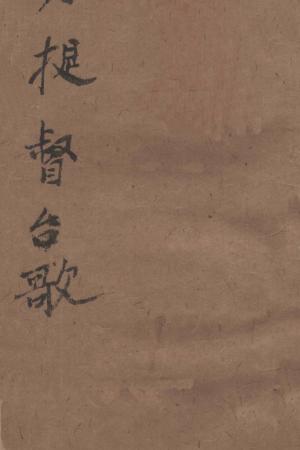 提督台歌